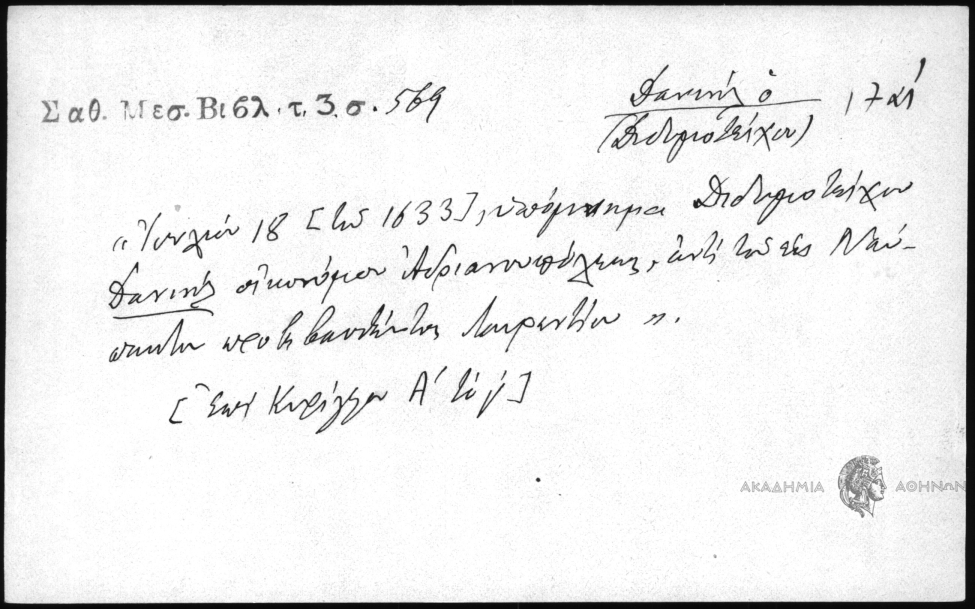 Σαθ. Μεσ. Βιβλ. τ. 3. σ. 569
Δανιήλ ὁ ,17ος
(Διδυμοτείχου)
«Ἰουλίου 18 [τοῦ 1633], ὑπόμνημα Διδυμοτείχου
Δανιήλ οἰκονόμου Ἀδριανουπόλεως, ἀντί τοῦ εἰς Ναύ-
πακτον προβιβασθέντος Λαυρεντίου».
[Ἐπί Κυρίλλου Α΄ τό γ΄]
ΑΚΑΔΗΜΙΑ ΑΘΗΝΩΝ